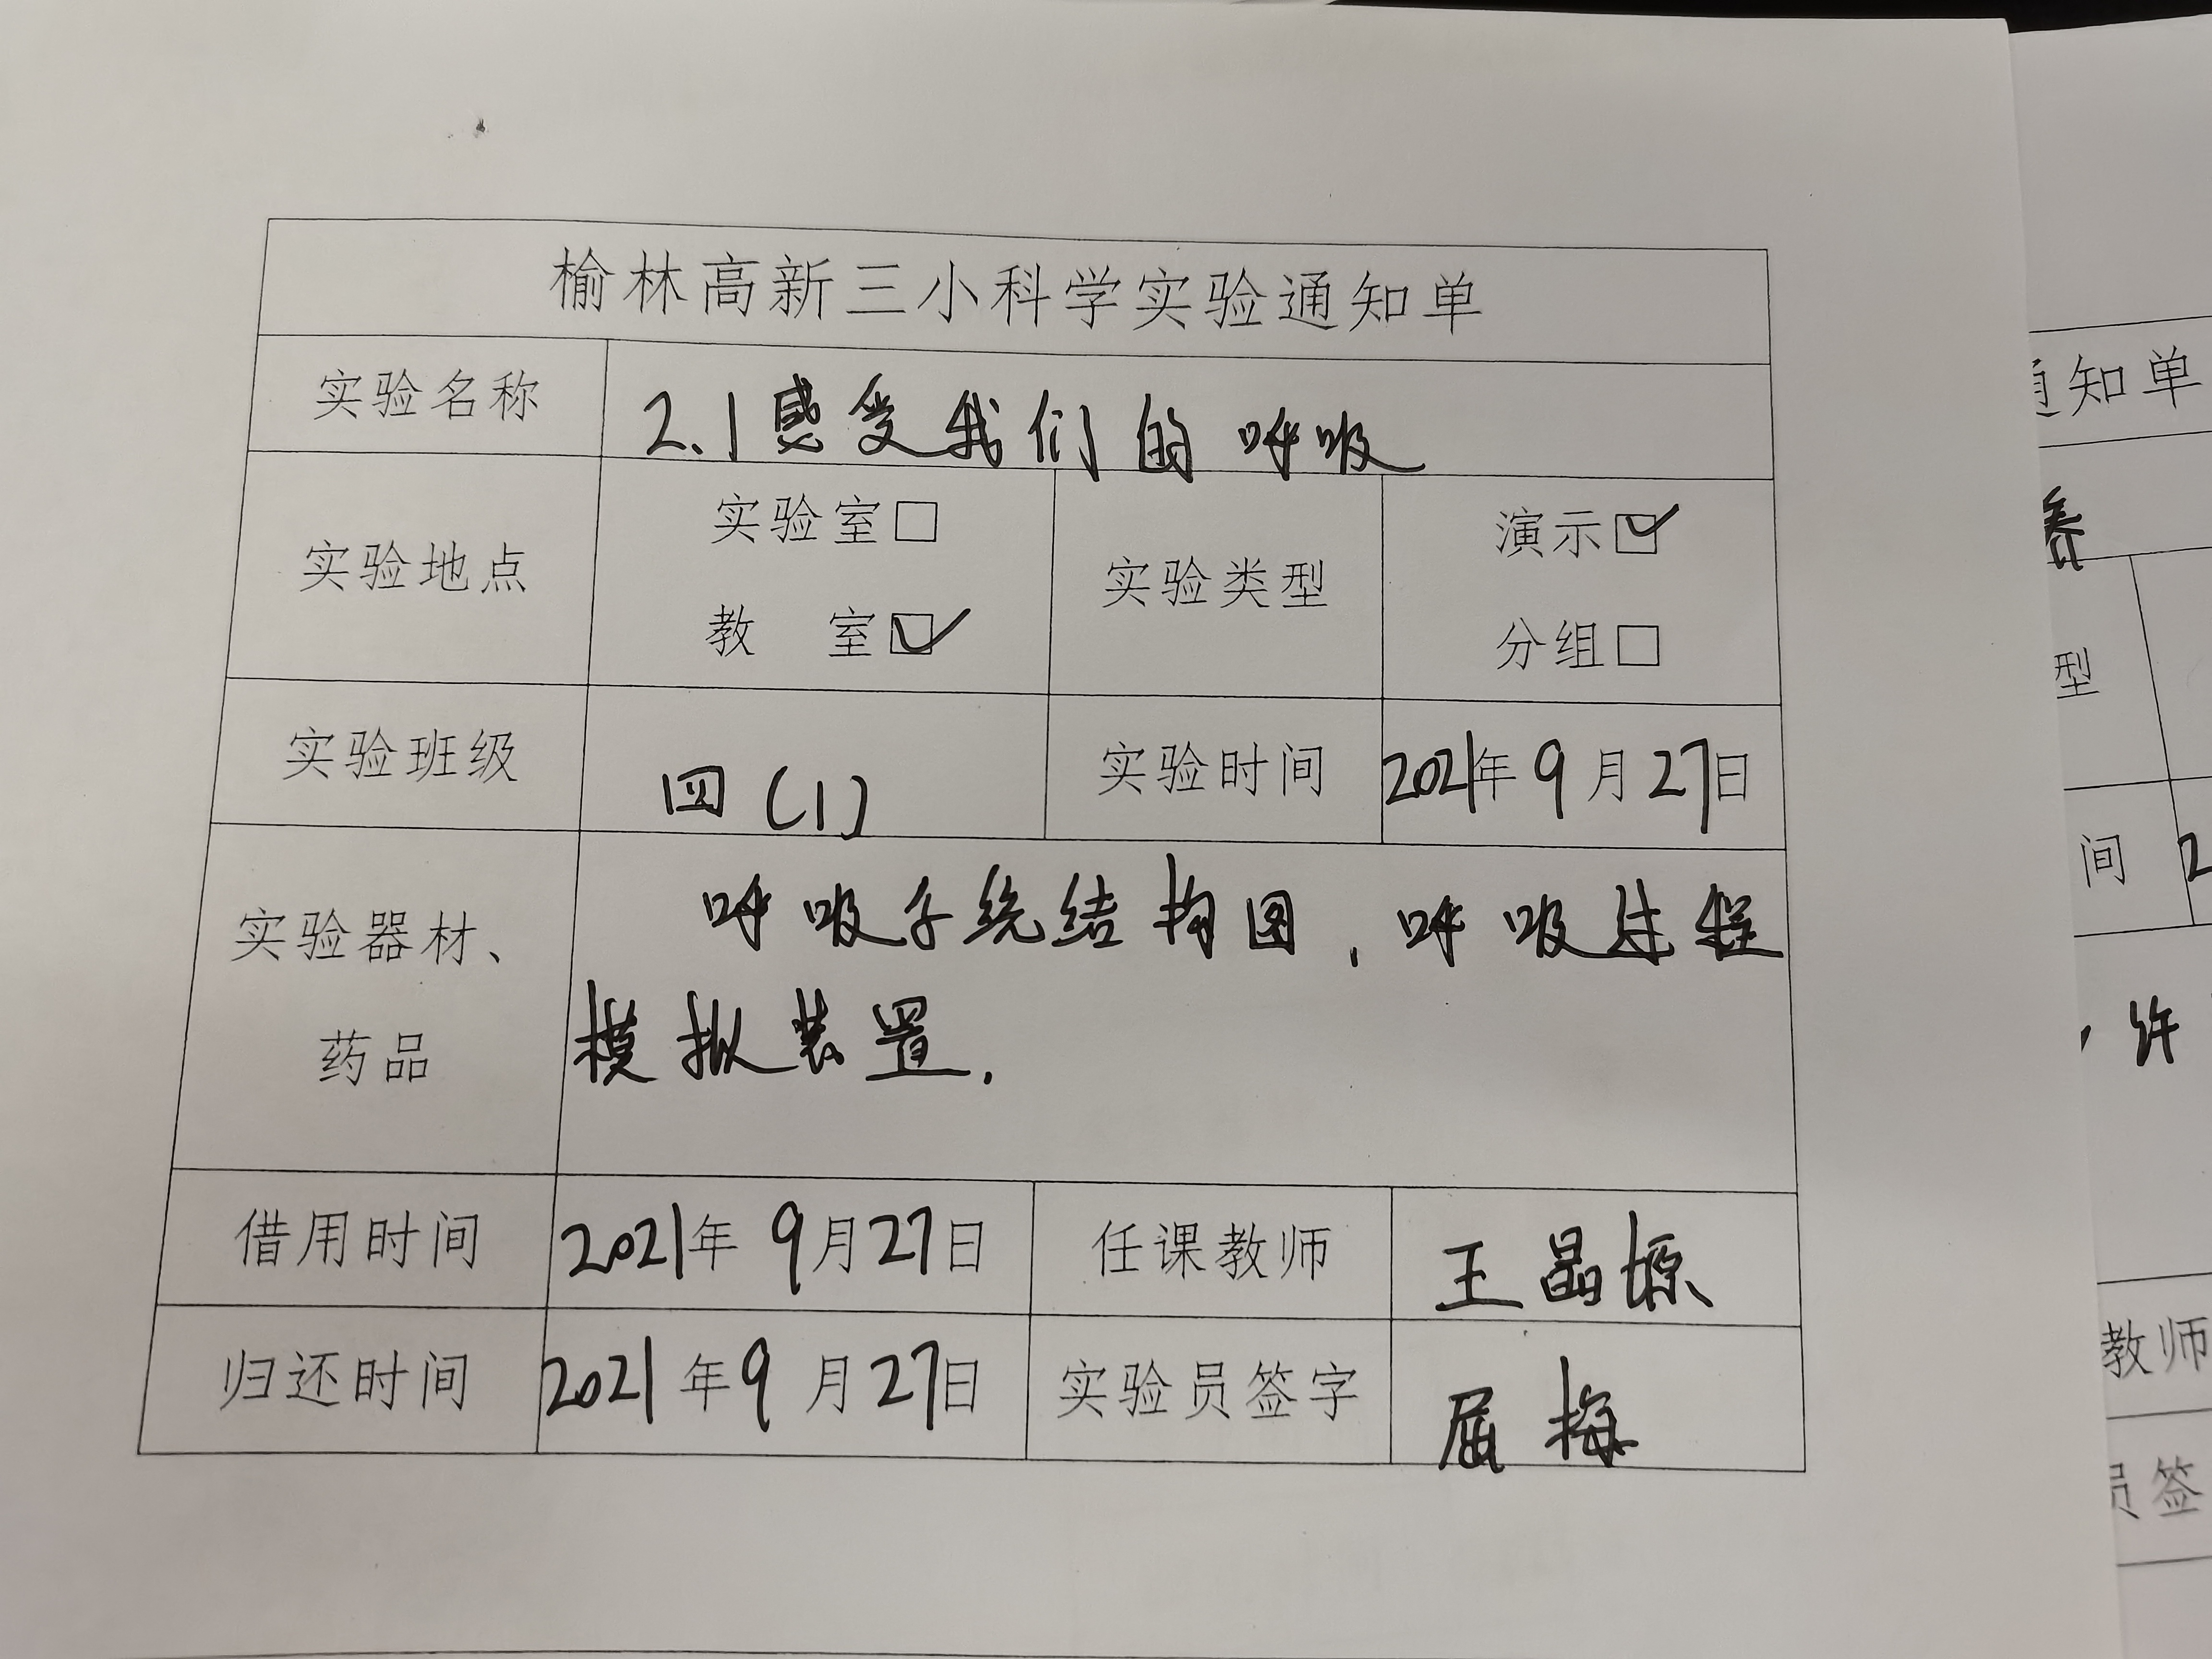 榆林高新三小科学实验通知单
实验名称
2.1感受我们的呼吸
实验地点
实验室□
教 室☑
实验类型
演示☑
分组□
实验班级
四(1)
实验时间
2021年9月27日
实验器材、
药品
呼吸系统结构图,呼吸过程
模拟装置.
借用时间
2021年9月27日
任课教师
王晶塬
归还时间
2021年9月27日
实验员签字
屈梅
通知单
养
型
间 2
,许
教师
员签